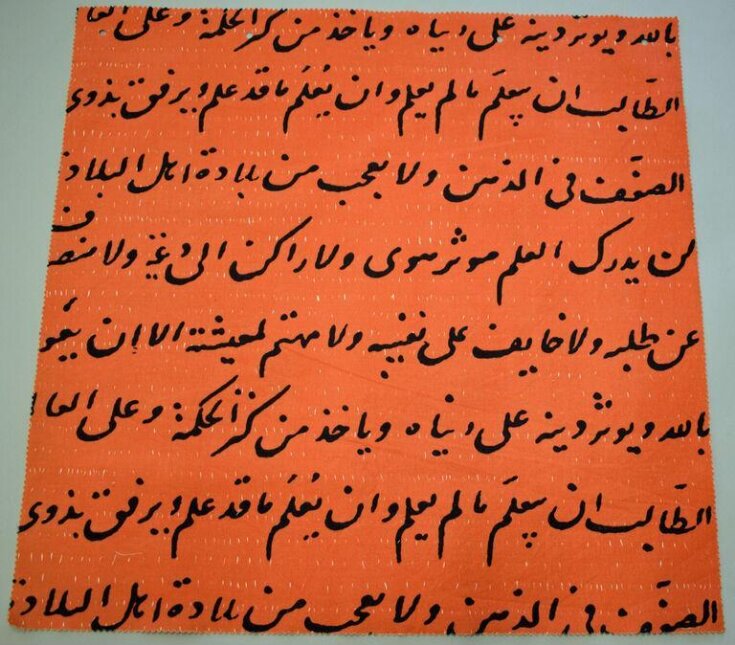 بالله ويوثر دينه على دنياه وياخذ من كنز الحكمة وعلى العا
الطالب ان يتعلم ما لم يعلم وان يُعلم ما قد علم ويرفق بذوى
الضعف في الذهن ولا يعجب من بلادة اهل البلاد
لن يدرك العلم موثر هوى ولا راكن الى ولا منصرف
عن طلبه ولا خايف على نفسه ولا مهتم لمعيشته الا ان يقو
بالله ويوثر دينه على دنياه وياخذ من كنز الحكمة وعلى العا
الطالب ان يتعلم ما لم يعلم وان يُعلم ما قد علم ويرفق بذوى
الضعف في الذهن ولا يعجب من بلادة اهل البلادة